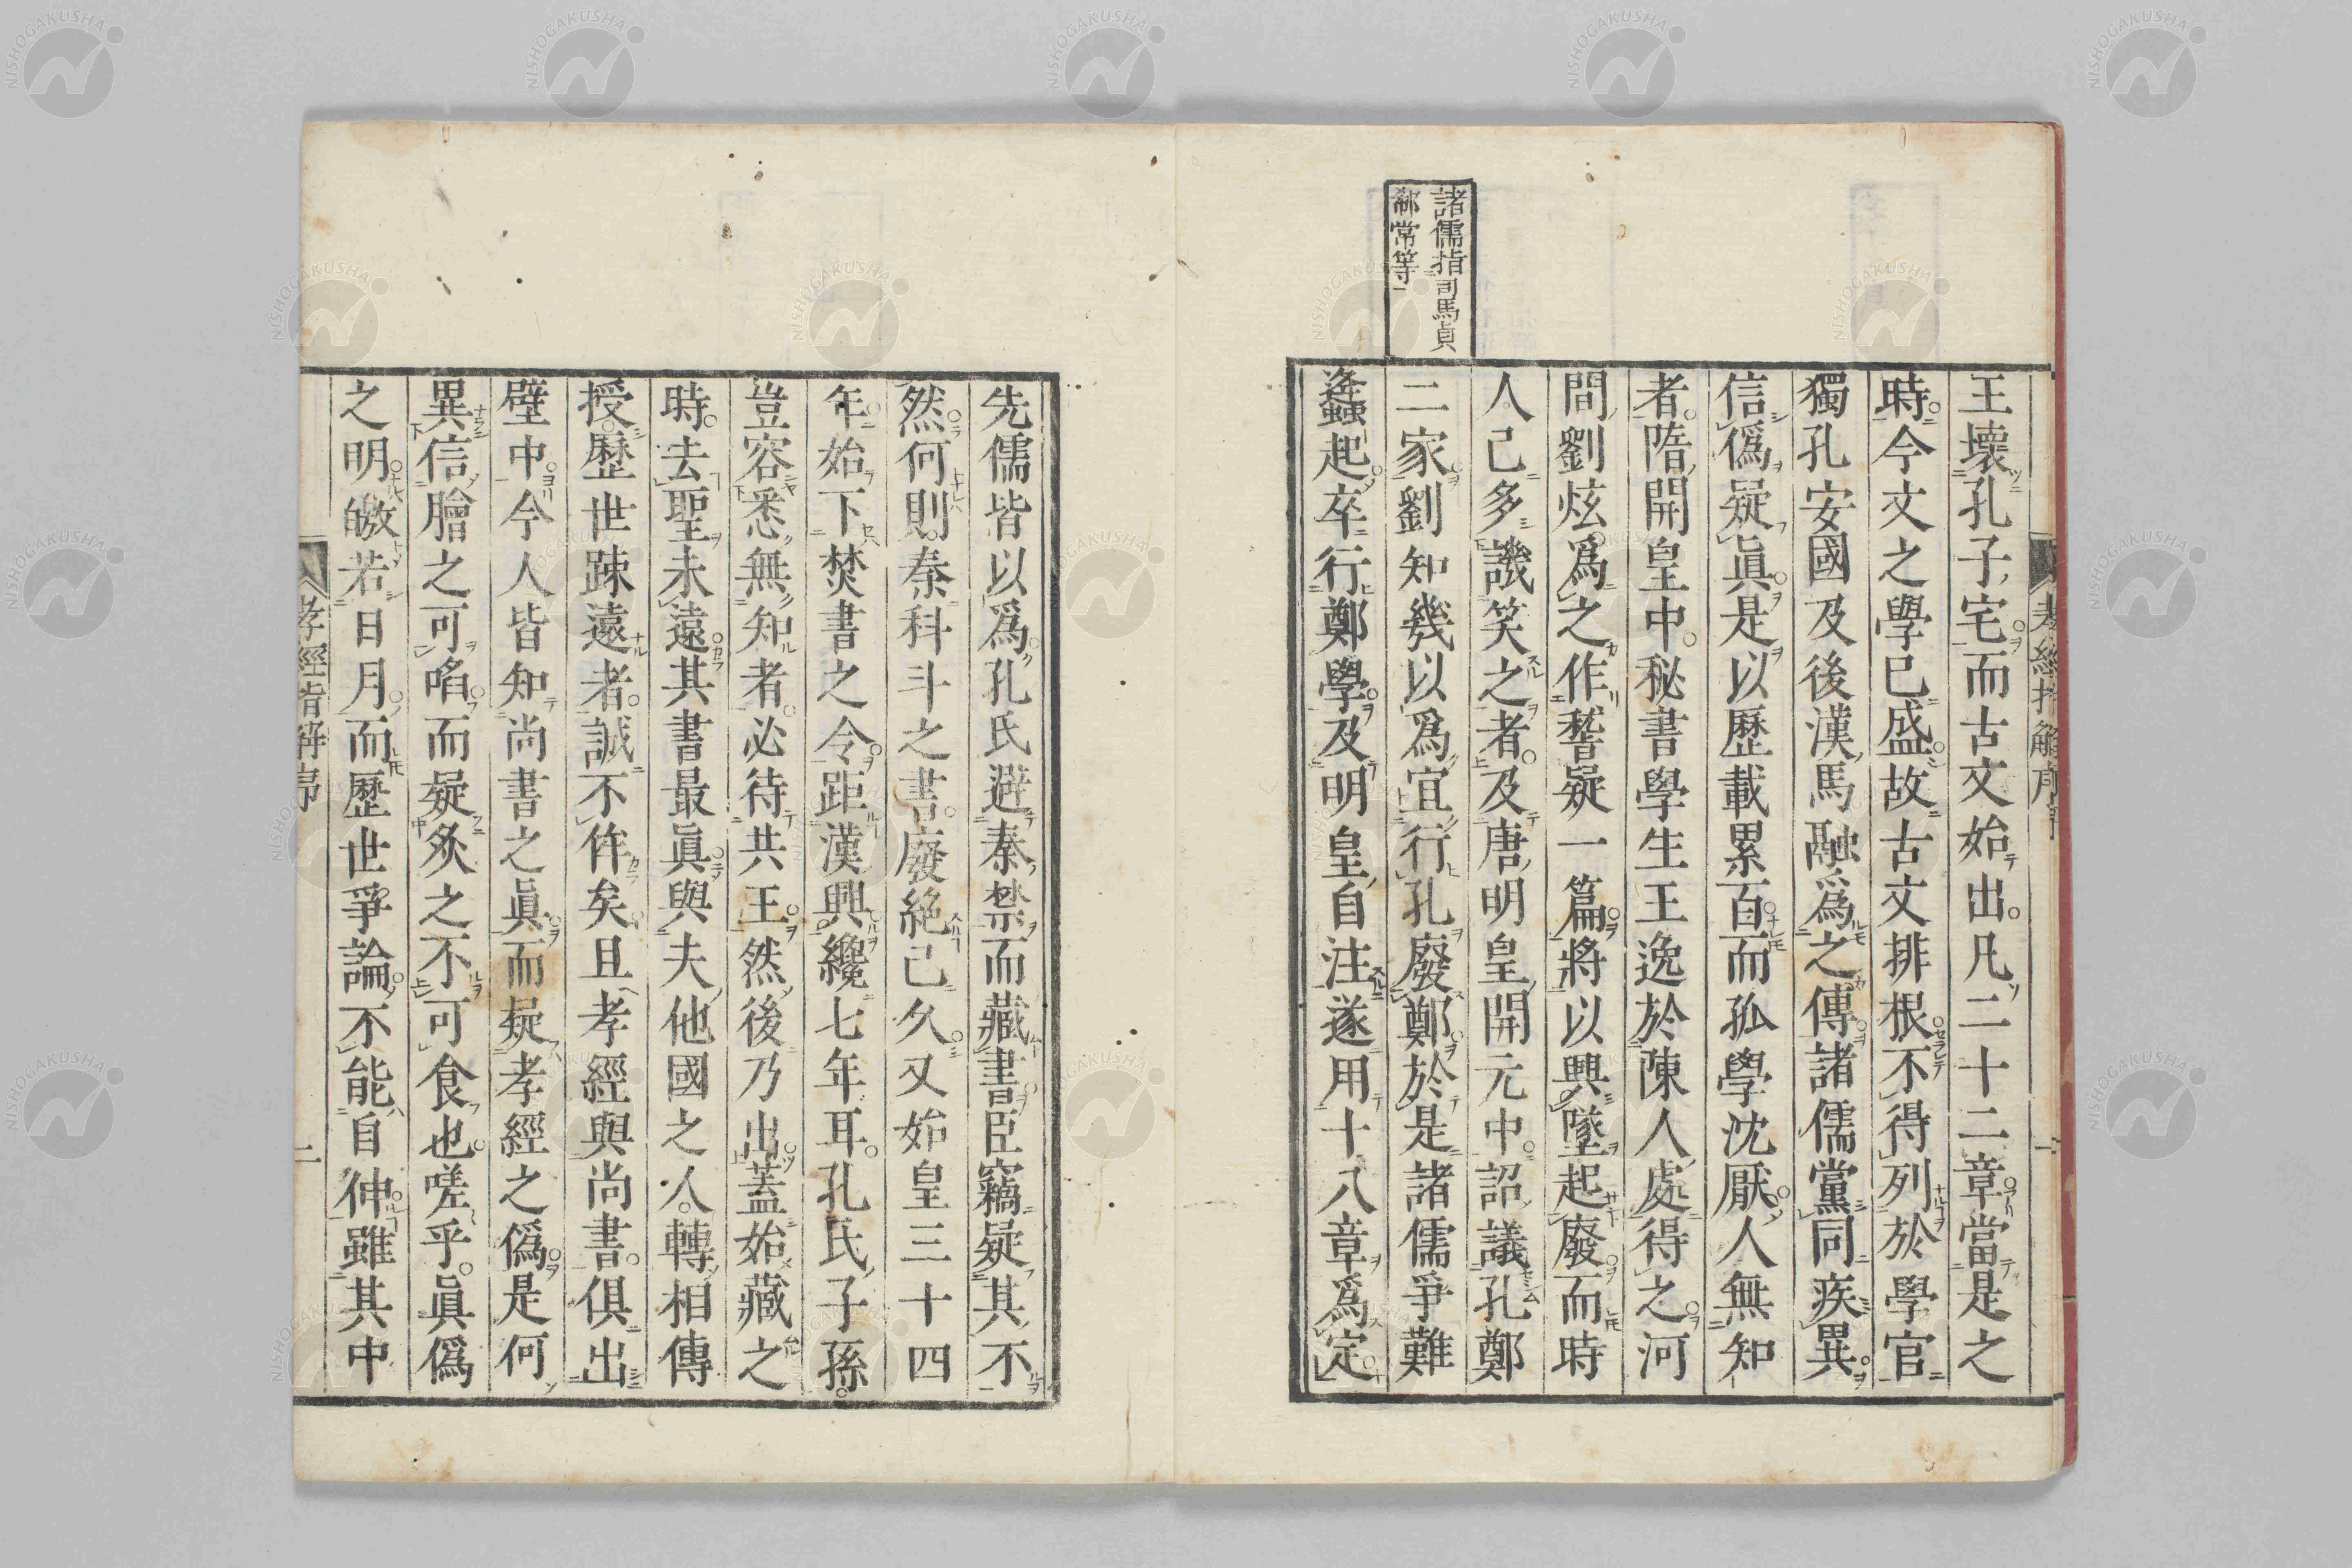 諸儒指司馬貞
鄒常等
王壞孔子宅而古文始出凡二十二章當是之
時今文之學已盛故古文排根不得列於學官
獨孔安國及後漢馬融爲之傳諸儒黨同疾異
信僞疑眞是以歷載累百而孤學沈厭人無知
者隋開皇中秘書學生王逸於陳人處得之河
間劉炫爲之作稽疑一篇將以興墜起廢而時
人已多譏笑之者及唐明皇開元中詔議孔鄭
二家劉知幾以爲宜行孔廢鄭於是諸儒爭難
蠭起卒行鄭學及明皇自注遂用十八章爲定
孝經指解序
一
先儒皆以爲孔氏避秦禁而藏書臣竊疑其不
然何則秦科斗之書廢絶已久又始皇三十四
年始下焚書之令距漢興纔七年耳孔氏子孫
豈容悉無知者必待共王然後乃出蓋始藏之
時去聖未遠其書最眞與夫他國之人轉相傳
授歷世踈遠者誠不侔矣且孝經與尚書俱出
壁中今人皆知尚書之眞而疑孝經之僞是何
異信膾之可啗而疑炙之不可食也嗟乎眞僞
之明皦若日月而歷世爭論不能自伸雖其中
孝經指解序
二
NISHOGAKUSHA